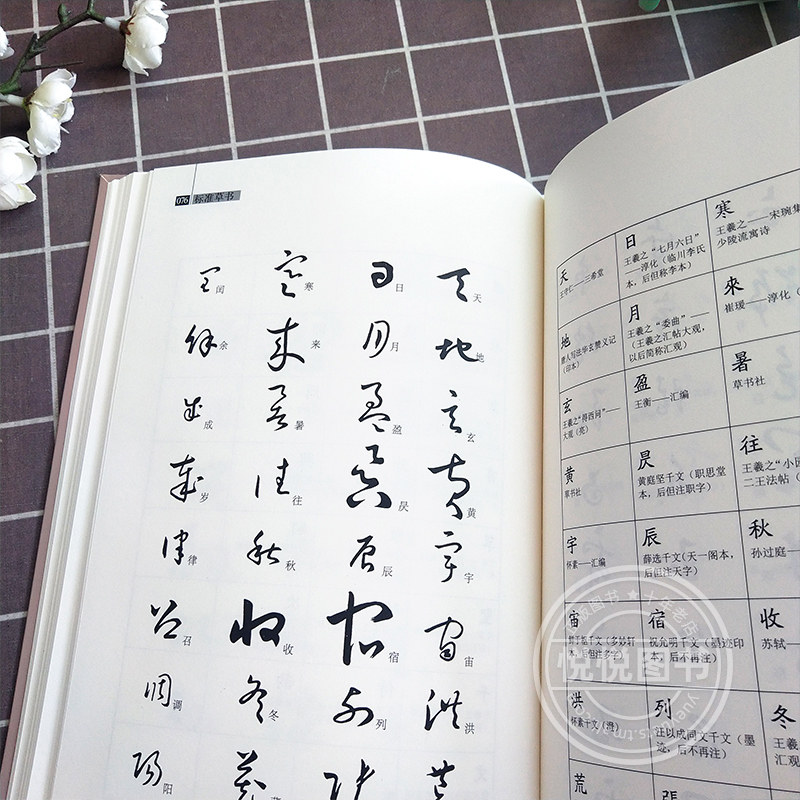 076 标准草书
天地玄黄宇宙洪
日月盈昃辰宿列
寒来暑往秋收冬
闰余成岁律召调阳
天
王守仁——三希堂
日
王羲之“七月六日”
——淳化（临川李氏
本，后但称李本）
寒
王羲之——宋琬集
少陵流寓诗
地
唐人写法华玄赞义记
（印本）
月
王羲之“委曲”——
（王羲之汇帖大观，
以后简称汇观）
來
崔瑗——淳化（
玄
王羲之“得西问”——
大观（亮）
盈
王衡——汇编
暑
草书社
黄
草书社
昃
黄庭坚千文（职思堂
本，后但注职字）
往
王羲之“小园
二王法帖（
宇
怀素——汇编
辰
薛选千文（天一阁本，
后但注天字）
秋
孙过庭——
宙
千文（多妙轩
本，后但注多字）
宿
祝允明千文（墨迹印
本，后不再注）
收
苏轼——
洪
怀素千文（绢）
列
汪以成同文千文（墨
迹，后不再注）
冬
王羲
汇观
荒
張
悦悦图书